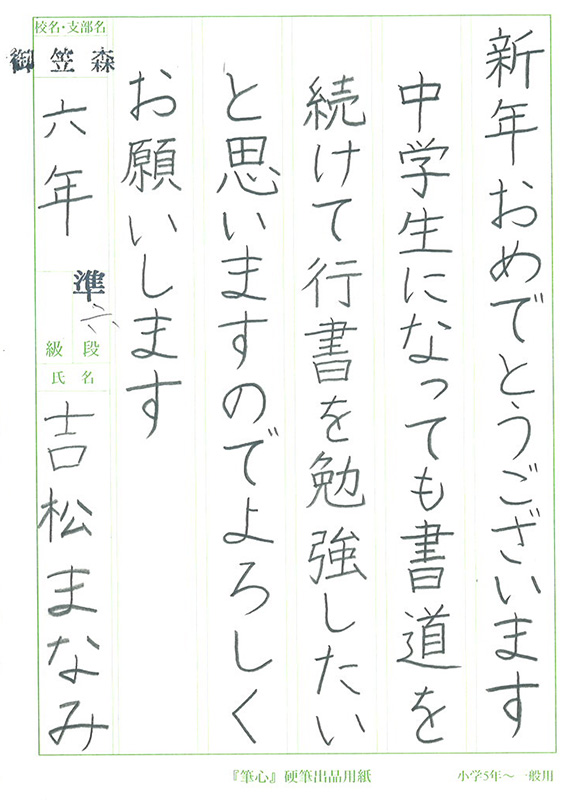 新年おめでとうございます
中学生になっても書道を
続けて行書を勉強したい
と思いますのでよろしく
お願いします
校名・支部名
御笠森
六年
準六
級段
氏名
吉松まなみ
『筆心』硬筆出品用紙
小学5年～一般用